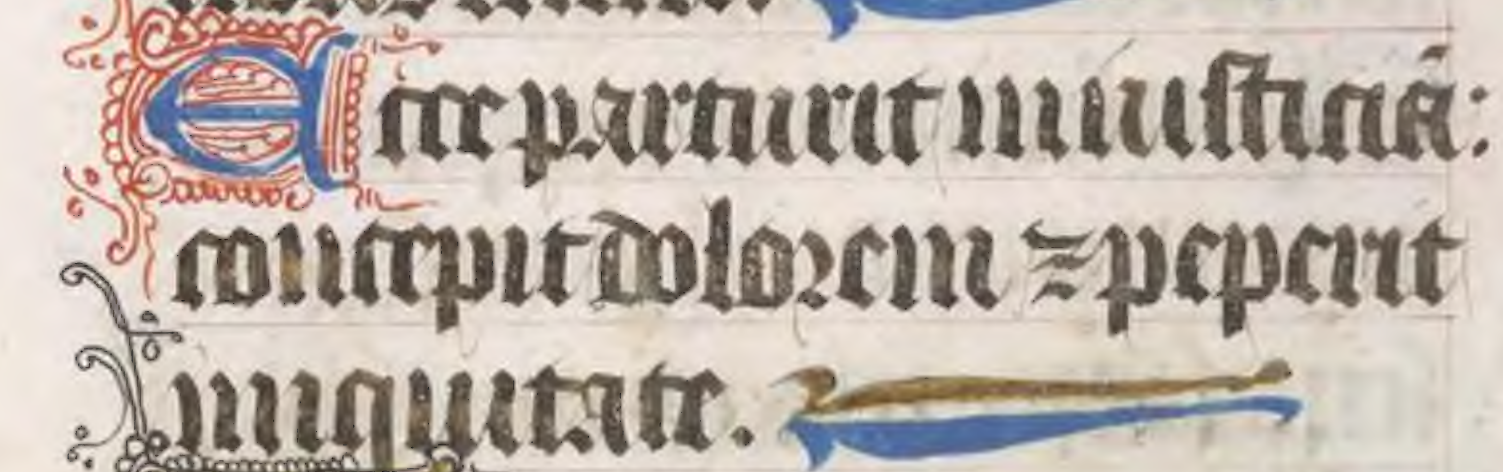 Ecce parturit iniusticiā:
concepit dolorem ⁊ peperit
iniquitate.